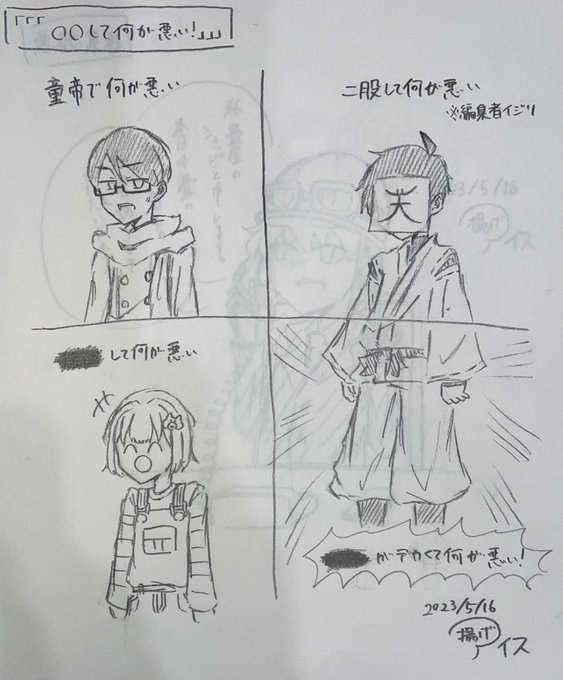 「「「○○して何が悪い!」」」
童帝で何が悪い
二股して何が悪い
※編集者イジリ
天
して何が悪い
がデカくて何が悪い!
2023/5/16
揚げ
アイス